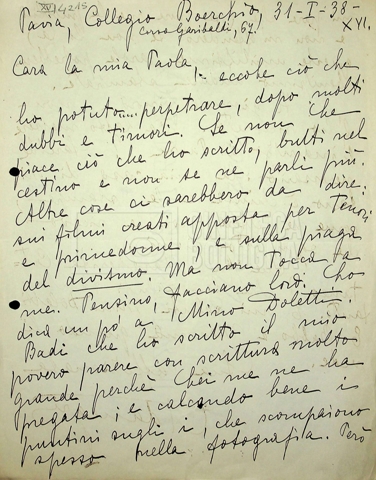 XV 4215
Pavia, Collegio Boerchio, 31-I-38-
corso Garibaldi, 57. XVI.
Cara la mia Paola,
eccole ciò che
ho potuto.... perpetrare, dopo molti
dubbi e timori. Se non che
piace ciò che ho scritto, butti nel
cestino e non se ne parli più.
Altre cose ci sarebbero da dire
sui films creati apposta per Tenori
e primedonne, e sulla piaga
del divismo. Ma non tocca a
me. Pensino, facciano loro. Cho
dica un pò a Mino Doletti.
Badi che ho scritto il mio
povero parere con scrittura molto
grande perchè Lei me ne ha
pregata; e calcando bene i
puntini sugli i, che scompaiono
spesso nella fotografia. Però